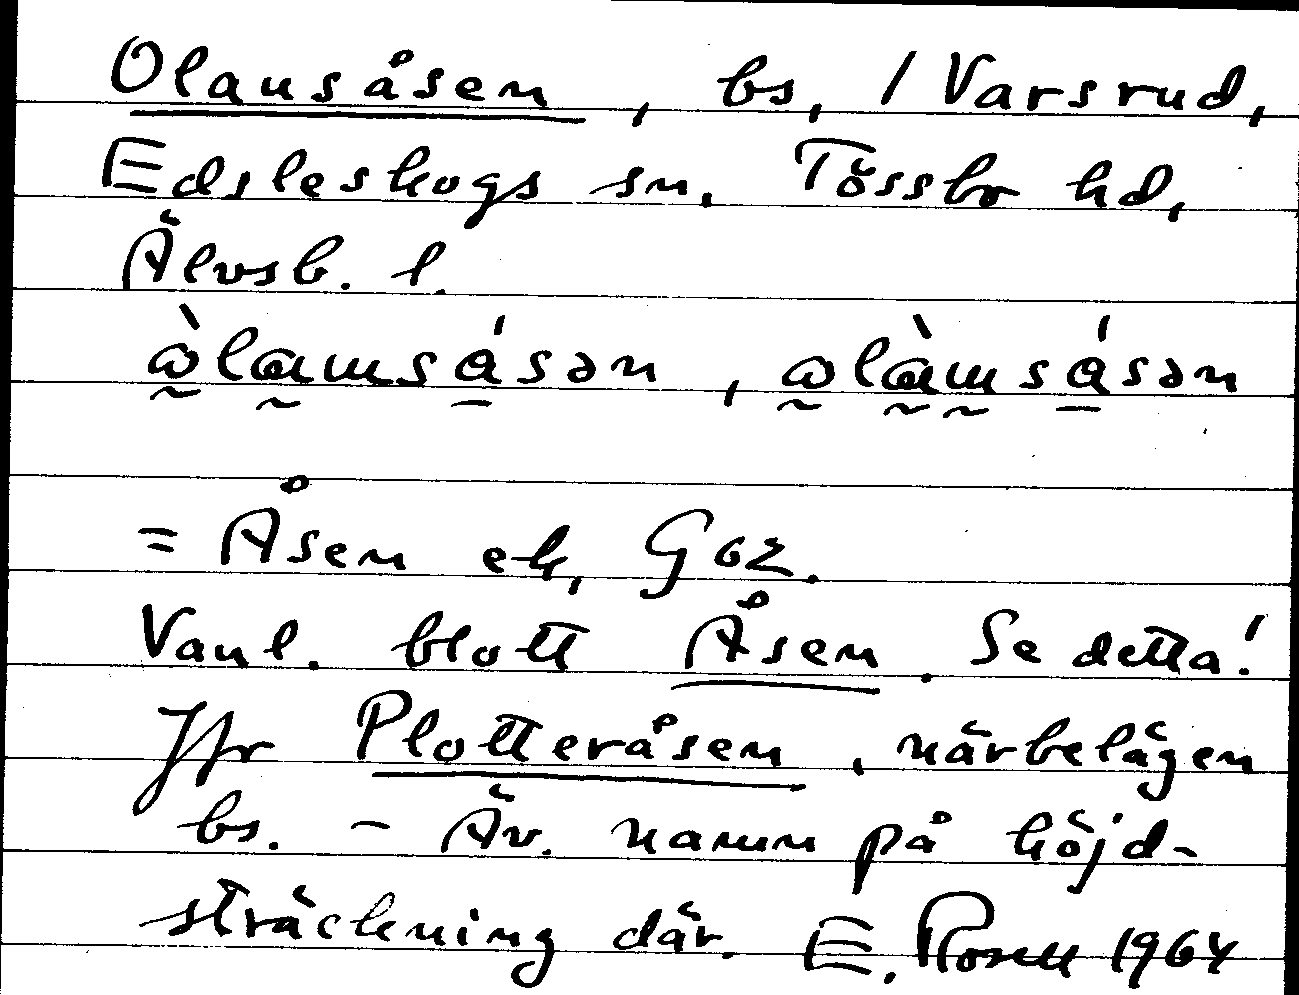 Olausåsen, bs, / Varsrud,
Edsleskogs sn. Tössbo hd,
Älvsb. l.
= Åsen ek, G02.
Vanl. blott Åsen. Se detta!
Jfr Plotteråsen, närbelägen
bs. – Äv. namn på höjd-
sträckning där. E. Rosell 1964